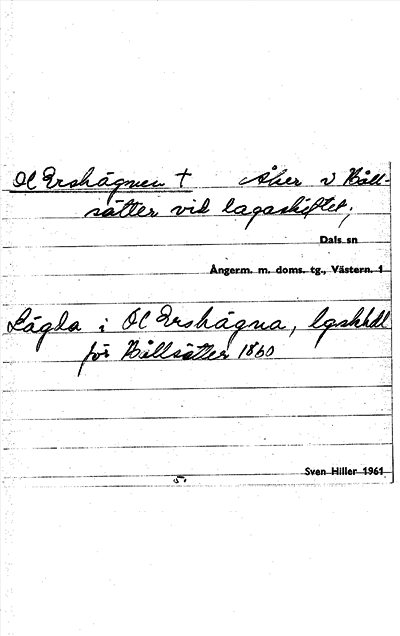 Ol Ershägnen † Åker i Håll-
sätter vid lagaskiftet,
Dals sn
Ångerm. m. doms. tg., Västern. 1
Lägda i Ol Ershägna, lgskhdl
för Hållsätter 1860
Sven Hiller 1961
5.